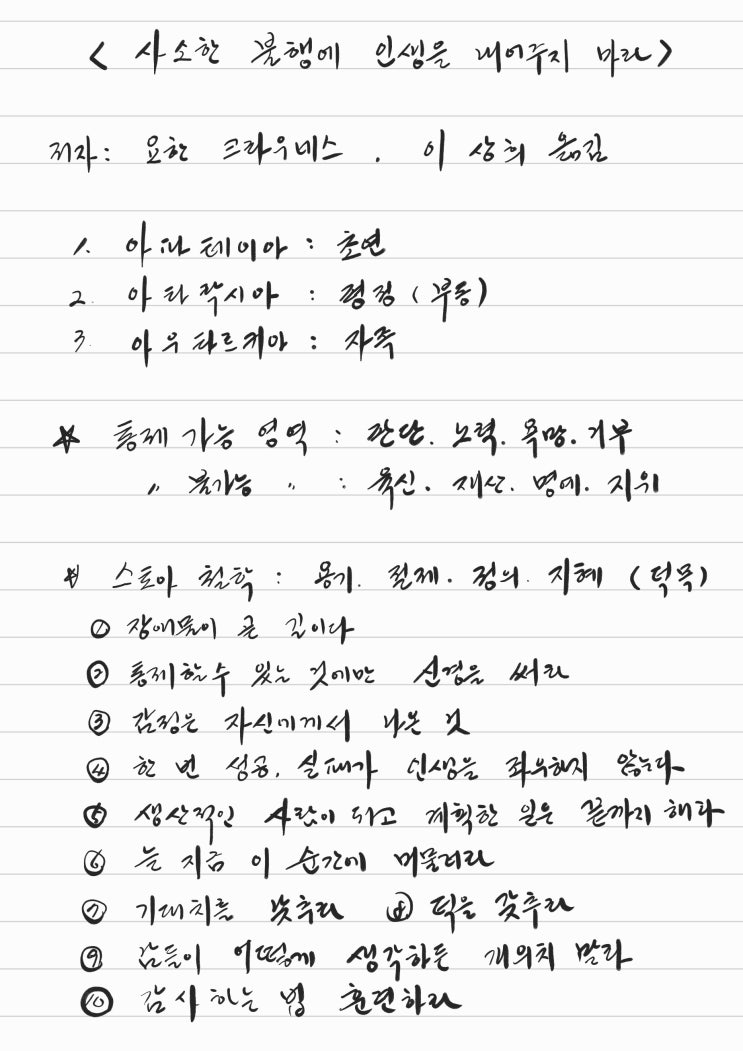 < 사소한 불행에 인생을 내어주지 마라 >
저자 : 요한 크라우네스 . 이 상희 옮김
1. 아파테이아 : 초연
2. 아타락시아 : 평정 ( 부동 )
3. 아우타르케아 : 자족
☆ 통제 가능 영역 : 판단. 노력. 욕망. 거부
〃 불가능 〃 : 육신. 재산. 명예. 지위
☆ 스토아 철학 : 용기. 절제. 정의. 지혜 ( 덕목 )
① 장애물이 곧 길이다
② 통제할 수 있는 것에만 신경을 써라
③ 감정은 자신에게서 나온 것
④ 한 번 성공, 실패가 인생을 좌우하지 않는다
⑤ 생산적인 사람이 되고 계획한 일은 끝까지 해라
⑥ 늘 지금 이 순간에 머물러라
⑦ 기대치를 낮추라 ⑧ 덕을 갖추라
⑨ 남들이 어떻게 생각하든 개의치 말라
⑩ 감사하는 법 훈련하라